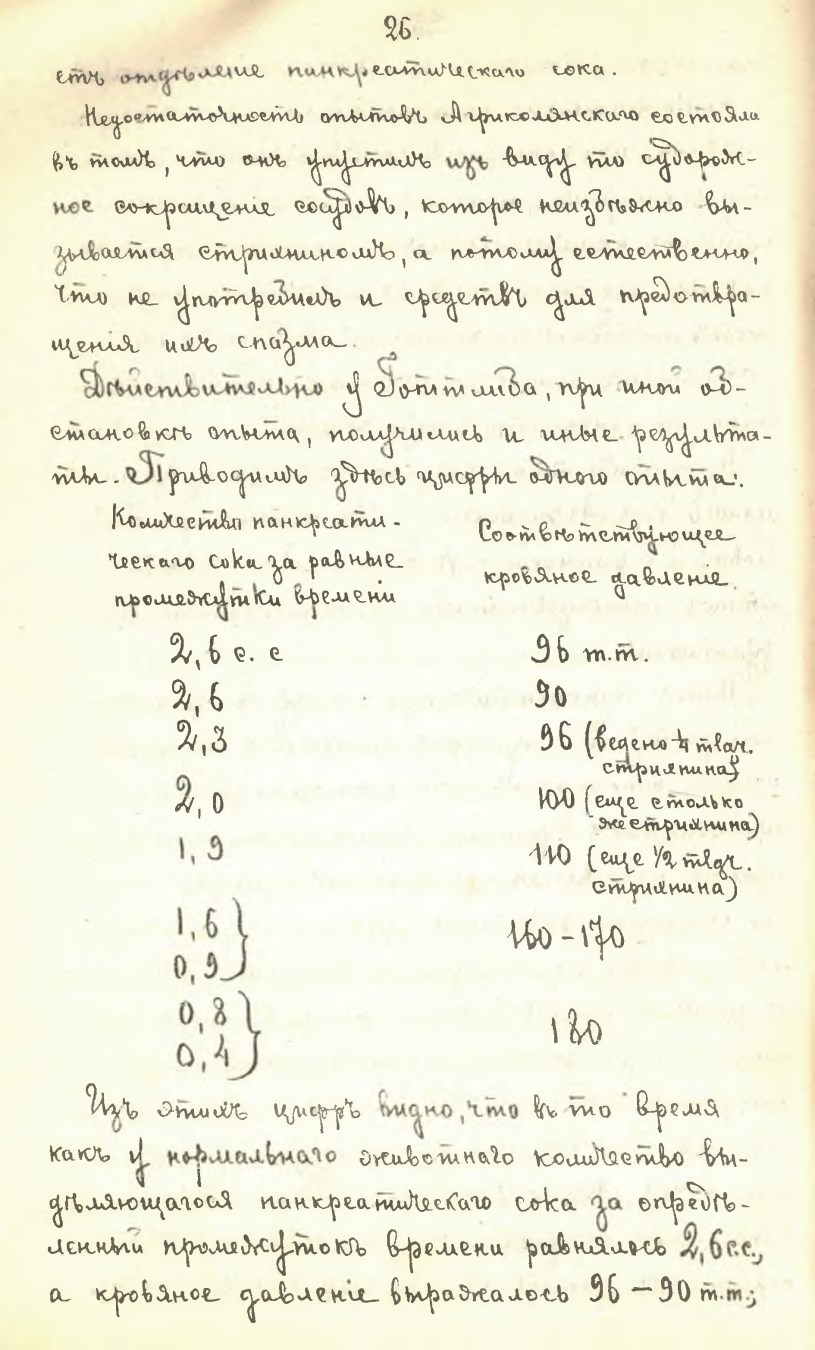 26.
етъ отдѣленіе панкреатическаго сока.
Недостаточность опытовъ Агриколянскаго состояла
въ томъ, что онъ упустилъ изъ виду то судорож-
ное сокращеніе сосудовъ, которое неизбѣжно вы-
зывается стрихниномъ, а потому естественно,
что не употребилъ и средствъ для предотвра-
щенія ихъ спазма.
Дѣйствительно у Готтлиба, при иной об-
становкѣ опыта, получились и иные результа-
ты. Приводимъ здѣсь цифры одного опыта:
Количество панкреати-
ческаго сока за равные
промежутки времени
Соотвѣтствующее
кровяное давленіе.
2,6 с. с 96 m.m.
2,6 90
2,3 96 (ведено ¼ mlgr.
стрихнина)
2,0 100 (еще столько
же стрихнина)
1,9 110 (еще 1/2 mlgr.
стрихнина)
1,6
0,9 } 160-170
0,8
0,4 } 180
Изъ этихъ цифръ видно, что въ то время
какъ у нормальнаго животнаго количество вы-
дѣляющагося панкреатическаго сока за опредѣ-
ленный промежутокъ времени равнялось 2,6 с.с.,
а кровяное давленіе выражалось 96 – 90 m.m.;